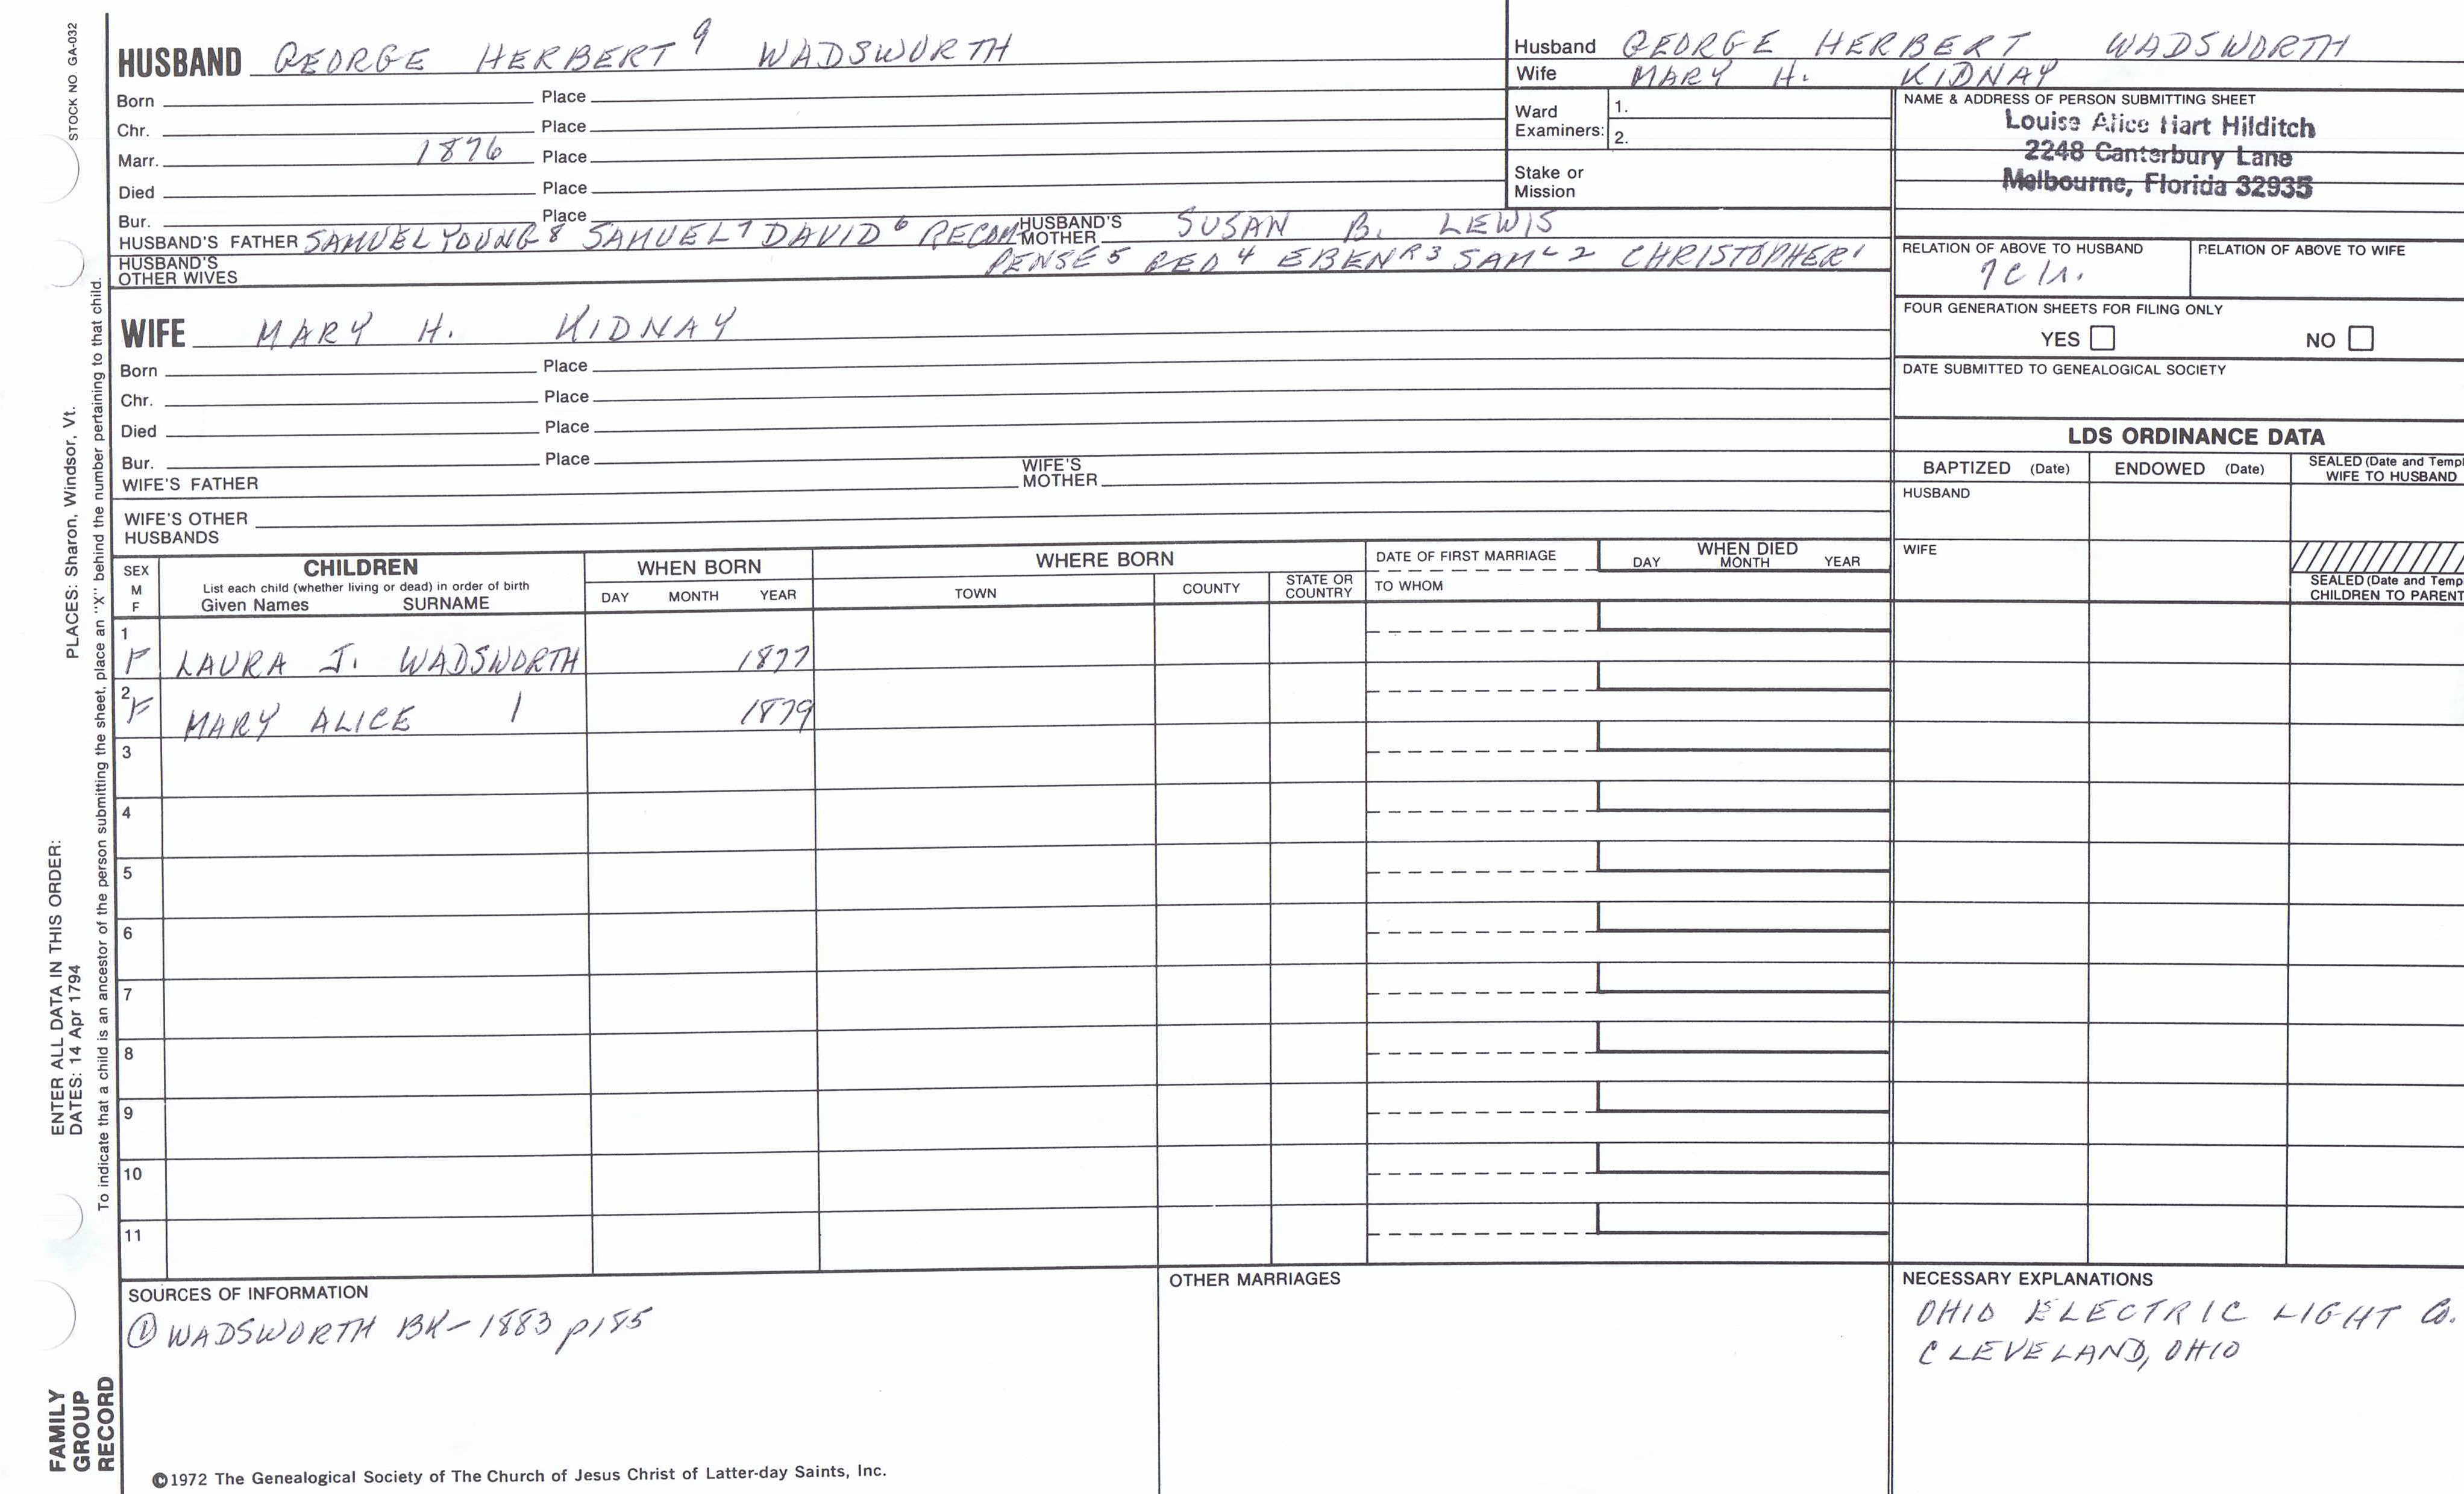 STOCK NO GA-032
HUSBAND GEORGE HERBERT 9 WADSWORTH
Born Place
Chr. Place
Marr. 1876 Place
Died Place
Bur. Place
HUSBAND'S FATHER SAMUEL YOUNG 8 SAMUEL 7 DAVID 6 RECOM- HUSBAND'S MOTHER SUSAN B. LEWIS
HUSBAND'S OTHER WIVES PENSE 5 RED 4 EBENR 3 SAML 2 CHRISTOPHER 1
WIFE MARY H. KIDNAY
Born Place
Chr. Place
Died Place
Bur. Place
WIFE'S FATHER WIFE'S MOTHER
WIFE'S OTHER HUSBANDS
Husband GEORGE HERBERT WADSWORTH
Wife MARY H. KIDNAY
Ward Examiners: 1.
2.
Stake or Mission
NAME & ADDRESS OF PERSON SUBMITTING SHEET
Louise Alice Hart Hilditch
2248 Canterbury Lane
Melbourne, Florida 32935
RELATION OF ABOVE TO HUSBAND RELATION OF ABOVE TO WIFE
FOUR GENERATION SHEETS FOR FILING ONLY
YES NO
DATE SUBMITTED TO GENEALOGICAL SOCIETY
LDS ORDINANCE DATA
BAPTIZED (Date) ENDOWED (Date) SEALED (Date and Templ
WIFE TO HUSBAND
HUSBAND
WIFE
SEALED (Date and Temp
CHILDREN TO PARENT
SEX M F
CHILDREN
List each child (whether living or dead) in order of birth
Given Names SURNAME
WHEN BORN
DAY MONTH YEAR
WHERE BORN
TOWN COUNTY STATE OR COUNTRY
DATE OF FIRST MARRIAGE
TO WHOM
WHEN DIED
DAY MONTH YEAR
1 F LAURA J. WADSWORTH 1877
2 F MARY ALICE 1879
3
4
5
6
7
8
9
10
11
SOURCES OF INFORMATION
① WADSWORTH BK-1883 p185
OTHER MARRIAGES
NECESSARY EXPLANATIONS
OHIO ELECTRIC LIGHT Co.
CLEVELAND, OHIO
©1972 The Genealogical Society of The Church of Jesus Christ of Latter-day Saints, Inc.
FAMILY
GROUP
RECORD
ENTER ALL DATA IN THIS ORDER:
DATES: 14 Apr 1794 PLACES: Sharon, Windsor, Vt.
To indicate that a child is an ancestor of the person submitting the sheet, place an "X" behind the number pertaining to that child.